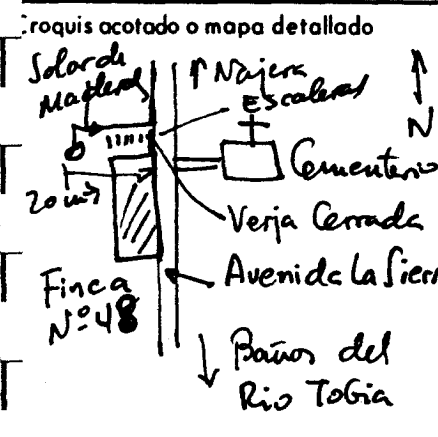 Croquis acotado o mapa detallado
Solar de
Maderas
↑ Najera
Escaleras
N
Cementerio
20 mts
Verja Cerrada
Avenida La Sierr
Finca
Nº 48
↓ Baños del
Rio Tobia